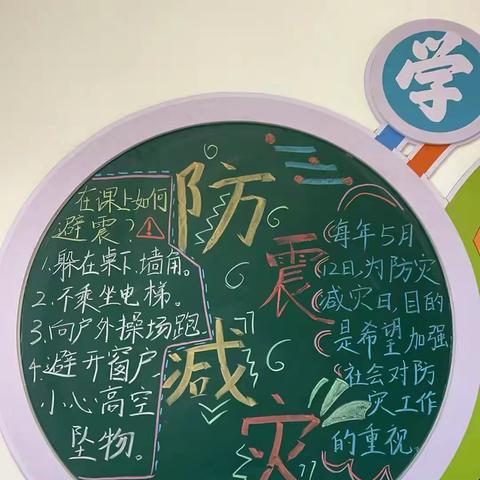 学
防
震
减
灾
在课上如何
避震?
1.躲在桌下,墙角。
2.不乘坐电梯。
3.向户外操场跑.
4.避开窗户
小心高空
坠物。
每年5月
12日,为防灾
减灾日,目的
是希望,加强
社会对防
灾工作
的重视